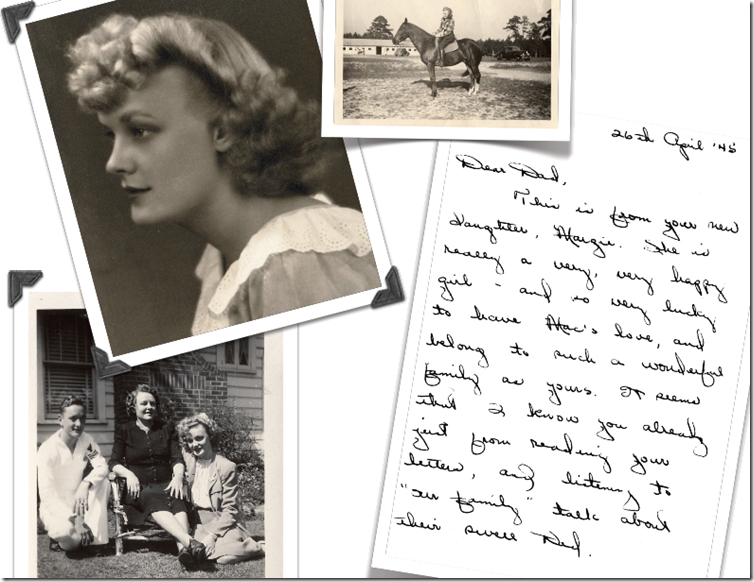 26th April '45
Dear Dad,
This is from your new
daughter, Margie. She is
really a very, very happy
girl - and so very lucky
to have Mac's love, and
belong to such a wonderful
family as yours. It seems
that I know you already
just from reading your
letters, and listening to
"our family" talk about
their swell Dad.